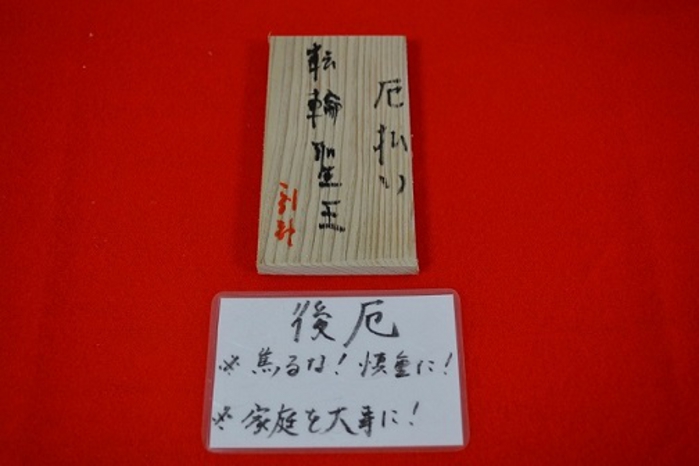 厄払い
転輪聖王
後厄
※焦るな！慎重に！
※家庭を大事に！